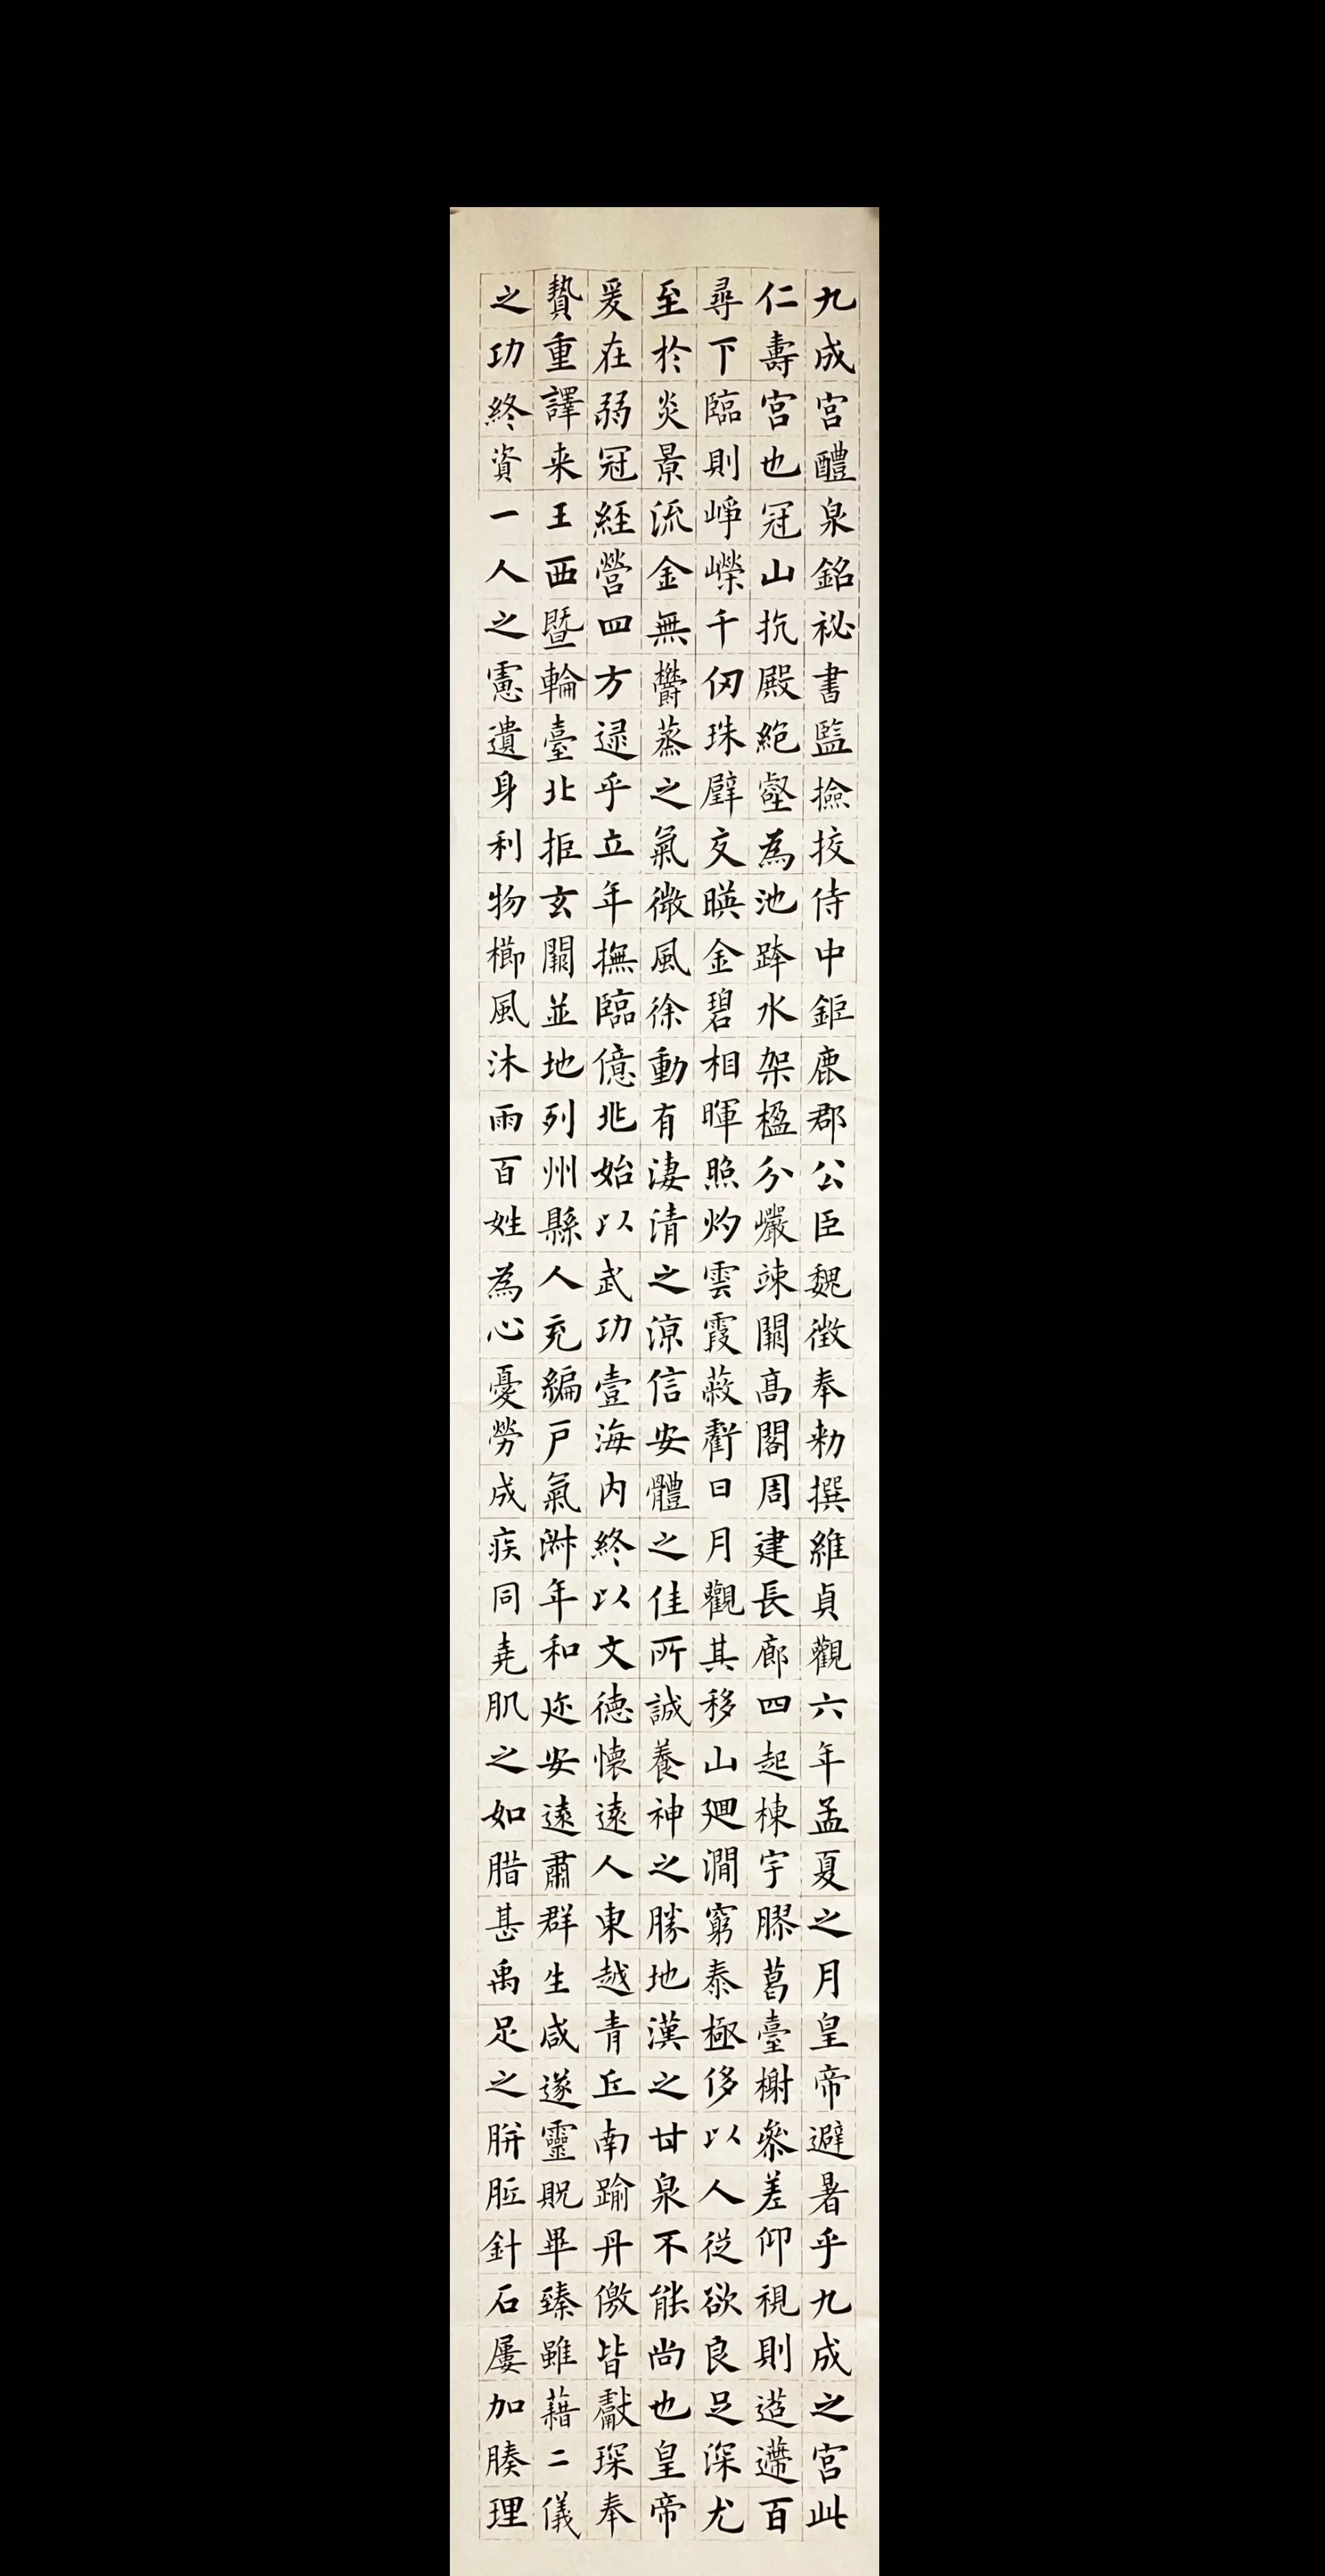 九成宫醴泉銘祕書監撿挍侍中鉅鹿郡公臣魏徵奉勑撰維貞觀六年孟夏之月皇帝避暑乎九成之宫此
仁壽宫也冠山抗殿絶壑為池跨水架楹分巖竦闕高閣周建長廊四起棟宇膠葛臺榭參差仰視則迢遰百
尋下臨則崢嶸千仞珠璧交暎金碧相暉照灼雲霞蔽虧日月觀其移山迴澗窮泰極侈以人從欲良足深尤
至於炎景流金無鬱蒸之氣微風徐動有淒清之涼信安體之佳所誠養神之勝地漢之甘泉不能尚也皇帝
爰在弱冠經營四方逮乎立年撫臨億兆始以武功壹海内終以文德懷遠人東越青丘南踰丹儌皆獻琛奉
贄重譯来王西曁輪臺北拒玄闕並地列州縣人充編戶氣淑年和迩安遠肅群生咸遂靈貺畢臻雖藉二儀
之功終資一人之慮遺身利物櫛風沐雨百姓為心憂勞成疾同堯肌之如腊甚禹足之胼胝針石屢加腠理